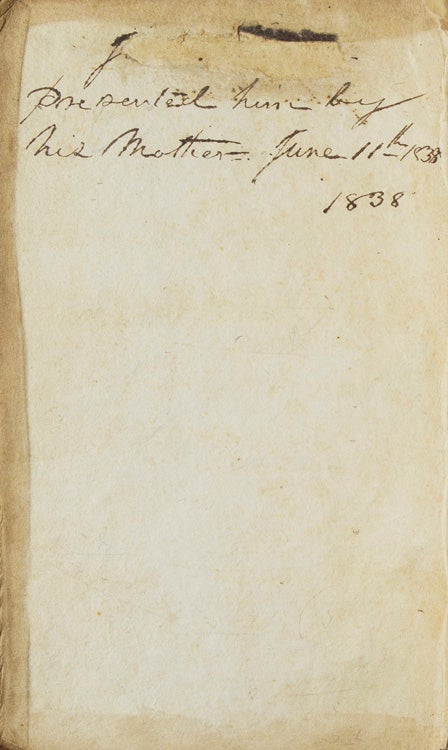 presented him by
his Mother = June 11th 1838
1838